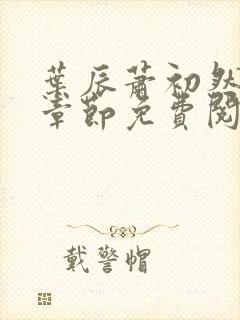 葉辰蕭初然
章節免費閱
戴警帽